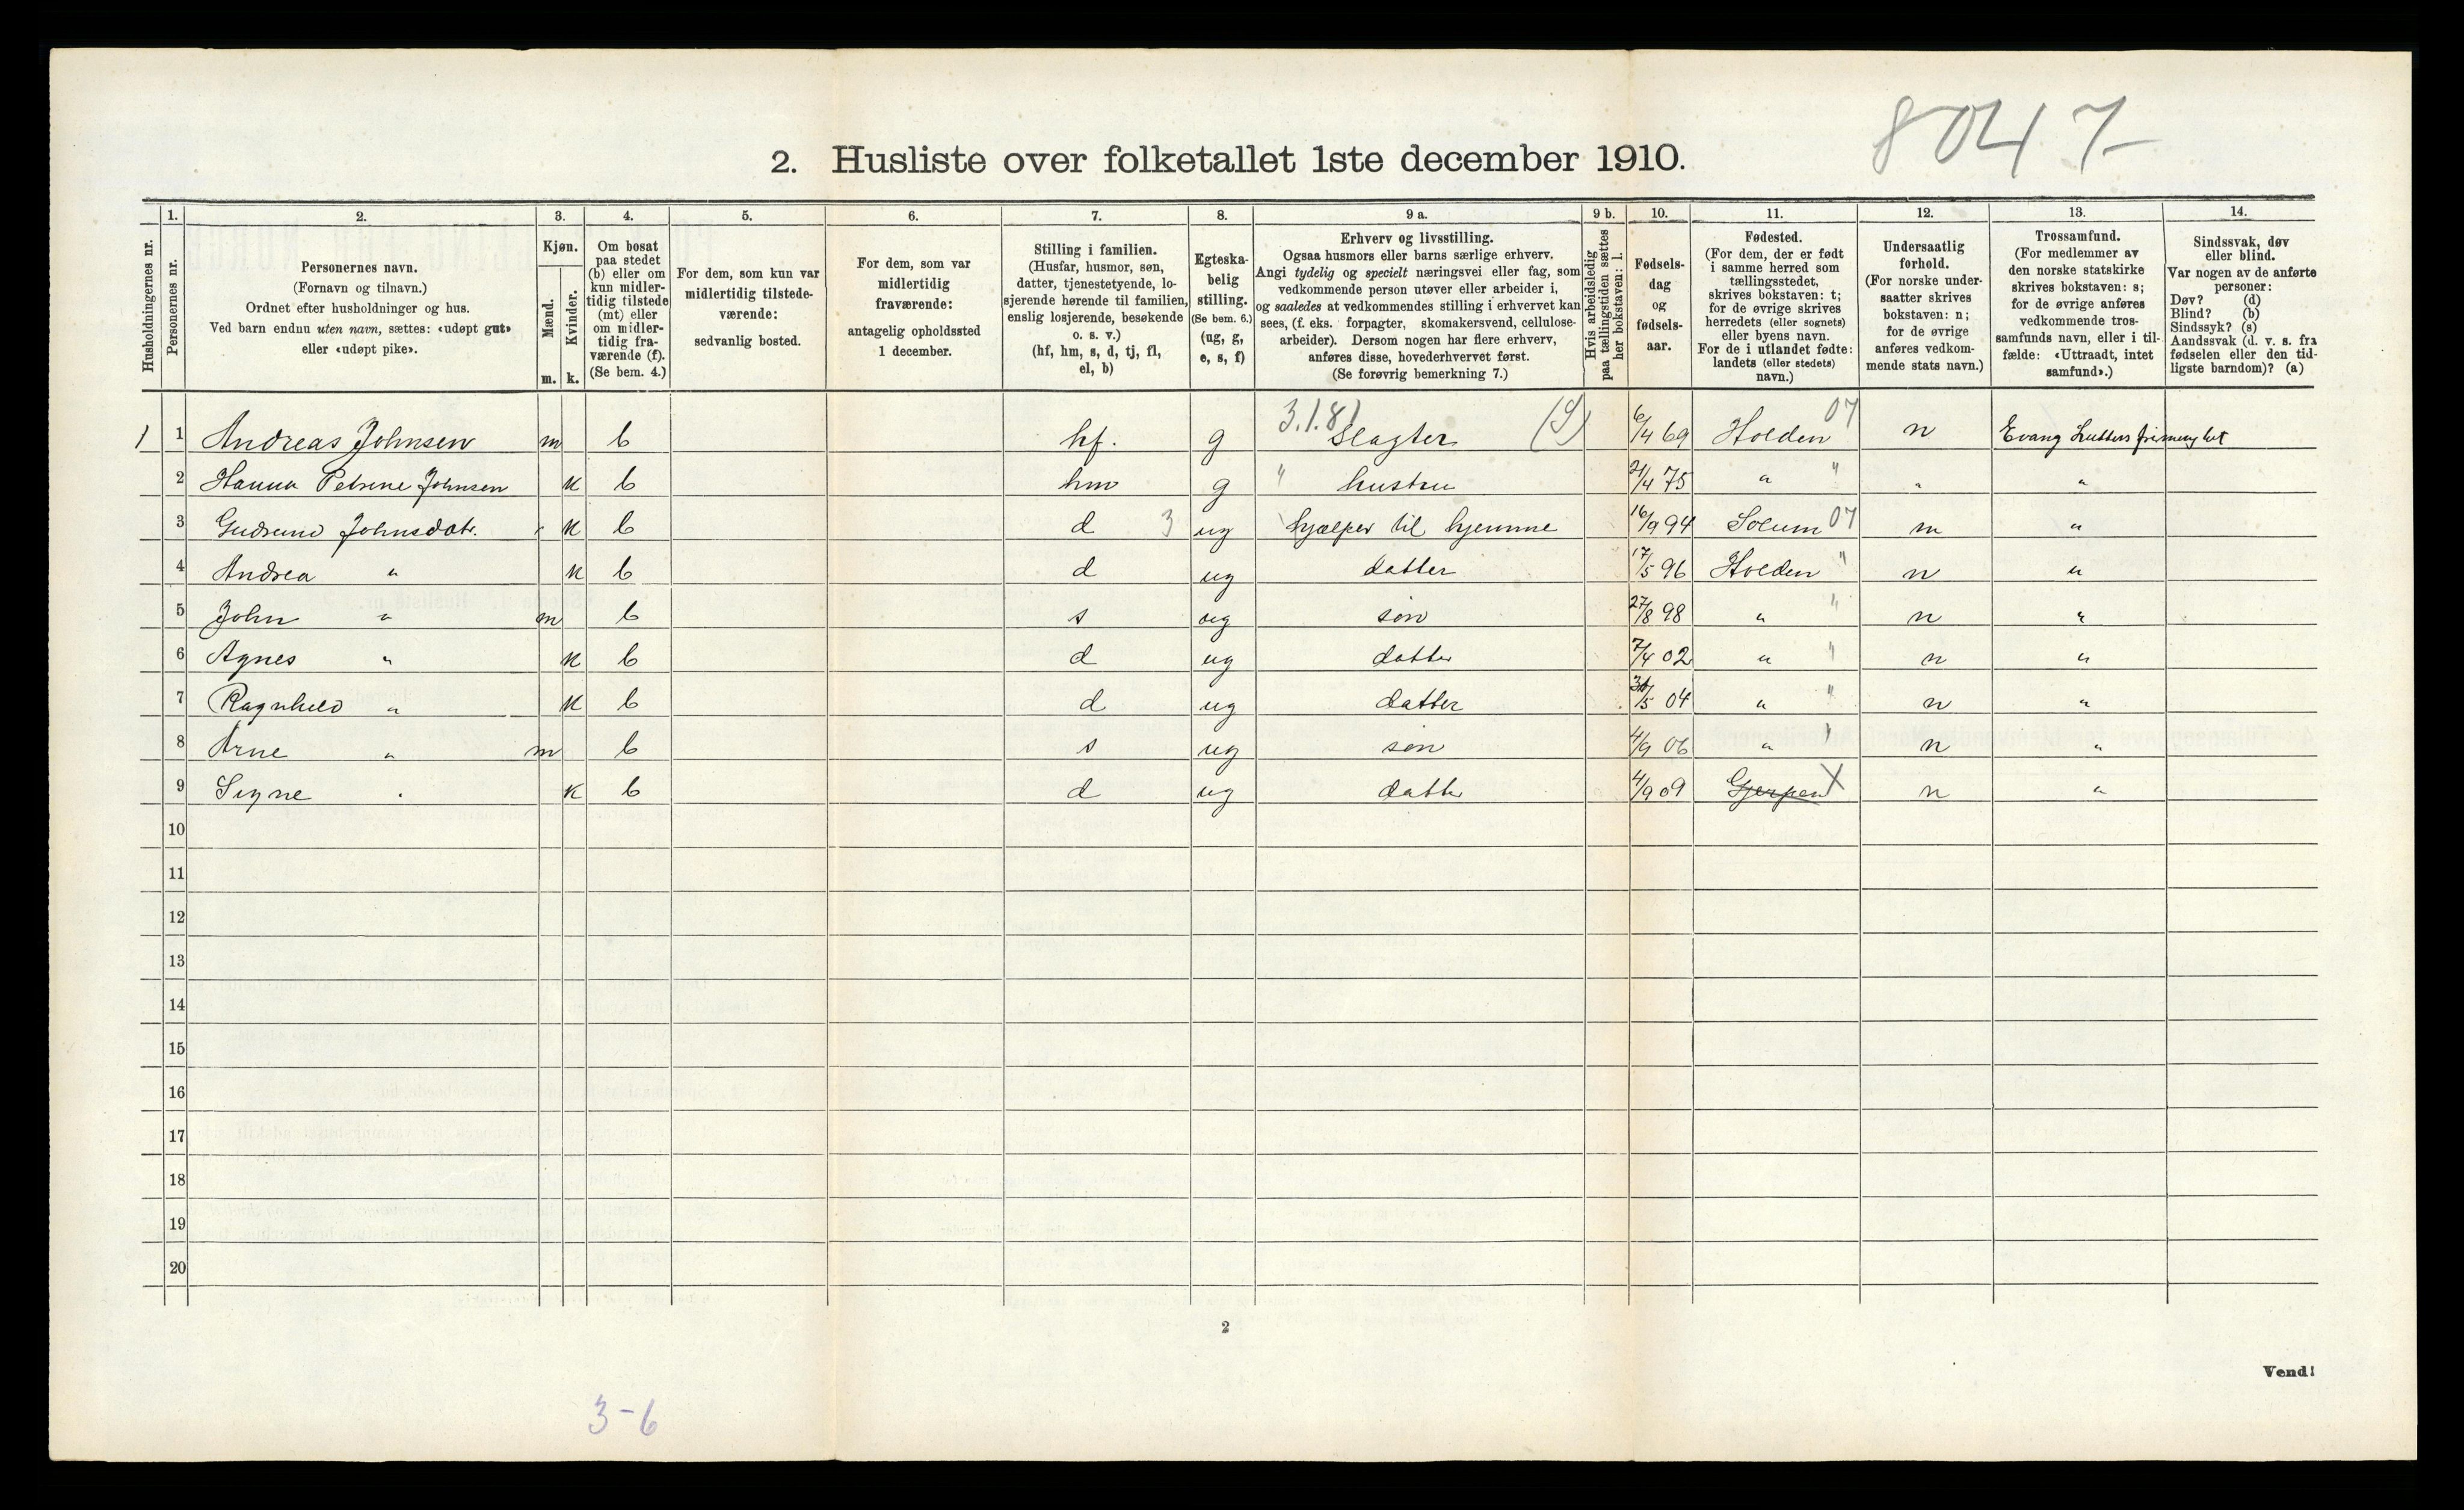 8047
2. Husliste over folketallet 1ste december 1910.
Husholdningernes nr.
1.
Personernes nr.
2.
Personernes navn.
(Fornavn og tilnavn.)
Ordnet efter husholdninger og hus.
Ved barn endnu uten navn, sættes: «udøpt gut»
eller «udøpt pike».
3.
Kjøn.
Mænd.
m.
Kvinder.
k.
4.
Om bosat
paa stedet
(b) eller om
kun midler-
tidig tilstede
(mt) eller
om midler-
tidig fra-
værende (f).
(Se bem. 4.)
5.
For dem, som kun var
midlertidig tilstede-
værende:
sedvanlig bosted.
6.
For dem, som var
midlertidig
fraværende:
antagelig opholdssted
1 december.
7.
Stilling i familien.
(Husfar, husmor, søn,
datter, tjenestetyende, lo-
sjerende hørende til familien,
enslig losjerende, besøkende
o. s. v.)
(hf, hm, s, d, tj, fl,
el, b)
8.
Egteska-
belig
stilling.
(Se bem. 6.)
(ug, g,
e, s, f)
9 a.
Erhverv og livsstilling.
Ogsaa husmors eller barns særlige erhverv.
Angi tydelig og specielt næringsvei eller fag, som
vedkommende person utøver eller arbeider i,
og saaledes at vedkommendes stilling i erhvervet kan
sees, (f. eks. forpagter, skomakersvend, cellulose-
arbeider). Dersom nogen har flere erhverv,
anføres disse, hovederhvervet først.
(Se forøvrig bemerkning 7.)
9 b.
Hvis arbeidsledig
paa tællingstiden sættes
her bokstaven: l.
10.
Fødsels-
dag
og
fødsels-
aar.
11.
Fødested.
(For dem, der er født
i samme herred som
tællingsstedet,
skrives bokstaven: t;
for de øvrige skrives
herredets (eller sognets)
eller byens navn.
For de i utlandet fødte:
landets (eller stedets)
navn.)
12.
Undersaatlig
forhold.
(For norske under-
saatter skrives
bokstaven: n;
for de øvrige
anføres vedkom-
mende stats navn.)
13.
Trossamfund.
(For medlemmer av
den norske statskirke
skrives bokstaven: s;
for de øvrige anføres
vedkommende tros-
samfunds navn, eller i til-
fælde: «Uttraadt, intet
samfund».)
14.
Sindssvak, døv
eller blind.
Var nogen av de anførte
personer:
Døv? (d)
Blind? (b)
Sindssyk? (s)
Aandssvak (d. v. s. fra
fødselen eller den tid-
ligste barndom)? (a)
1 1 Andreas Johnsen m b hf. g 3.1.81 Slagter (S) 6/4 69 Holden 07 n Evang
2 Hanna Petrine Johnsen k b hm g " hustru 21/4 75 " " " "
3 Gudrund Johnsdatr. k b d 3 ug hjælper til hjemme 16/9 94 Solum 07 n "
4 Andrea " k b d ug datter 17/5 96 Holden " n "
5 John " m b s ug søn 27/8 98 " " n "
6 Agnes " k b d ug datter 7/4 02 " " n "
7 Ragnhild " k b d ug datter /5 04 " " n "
8 Arne " m b s ug søn 4/9 06 " " n "
9 Signe " k b d ug datter 4/9 09 Gjerpen X n "
10
11
12
13
14
15
16
17
18
19
20
2
Vend!
3-6